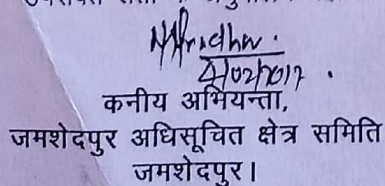 4/02/2017.
कनीय अभियन्ता,
जमशेदपुर अधिसूचित क्षेत्र समिति
जमशेदपुर।